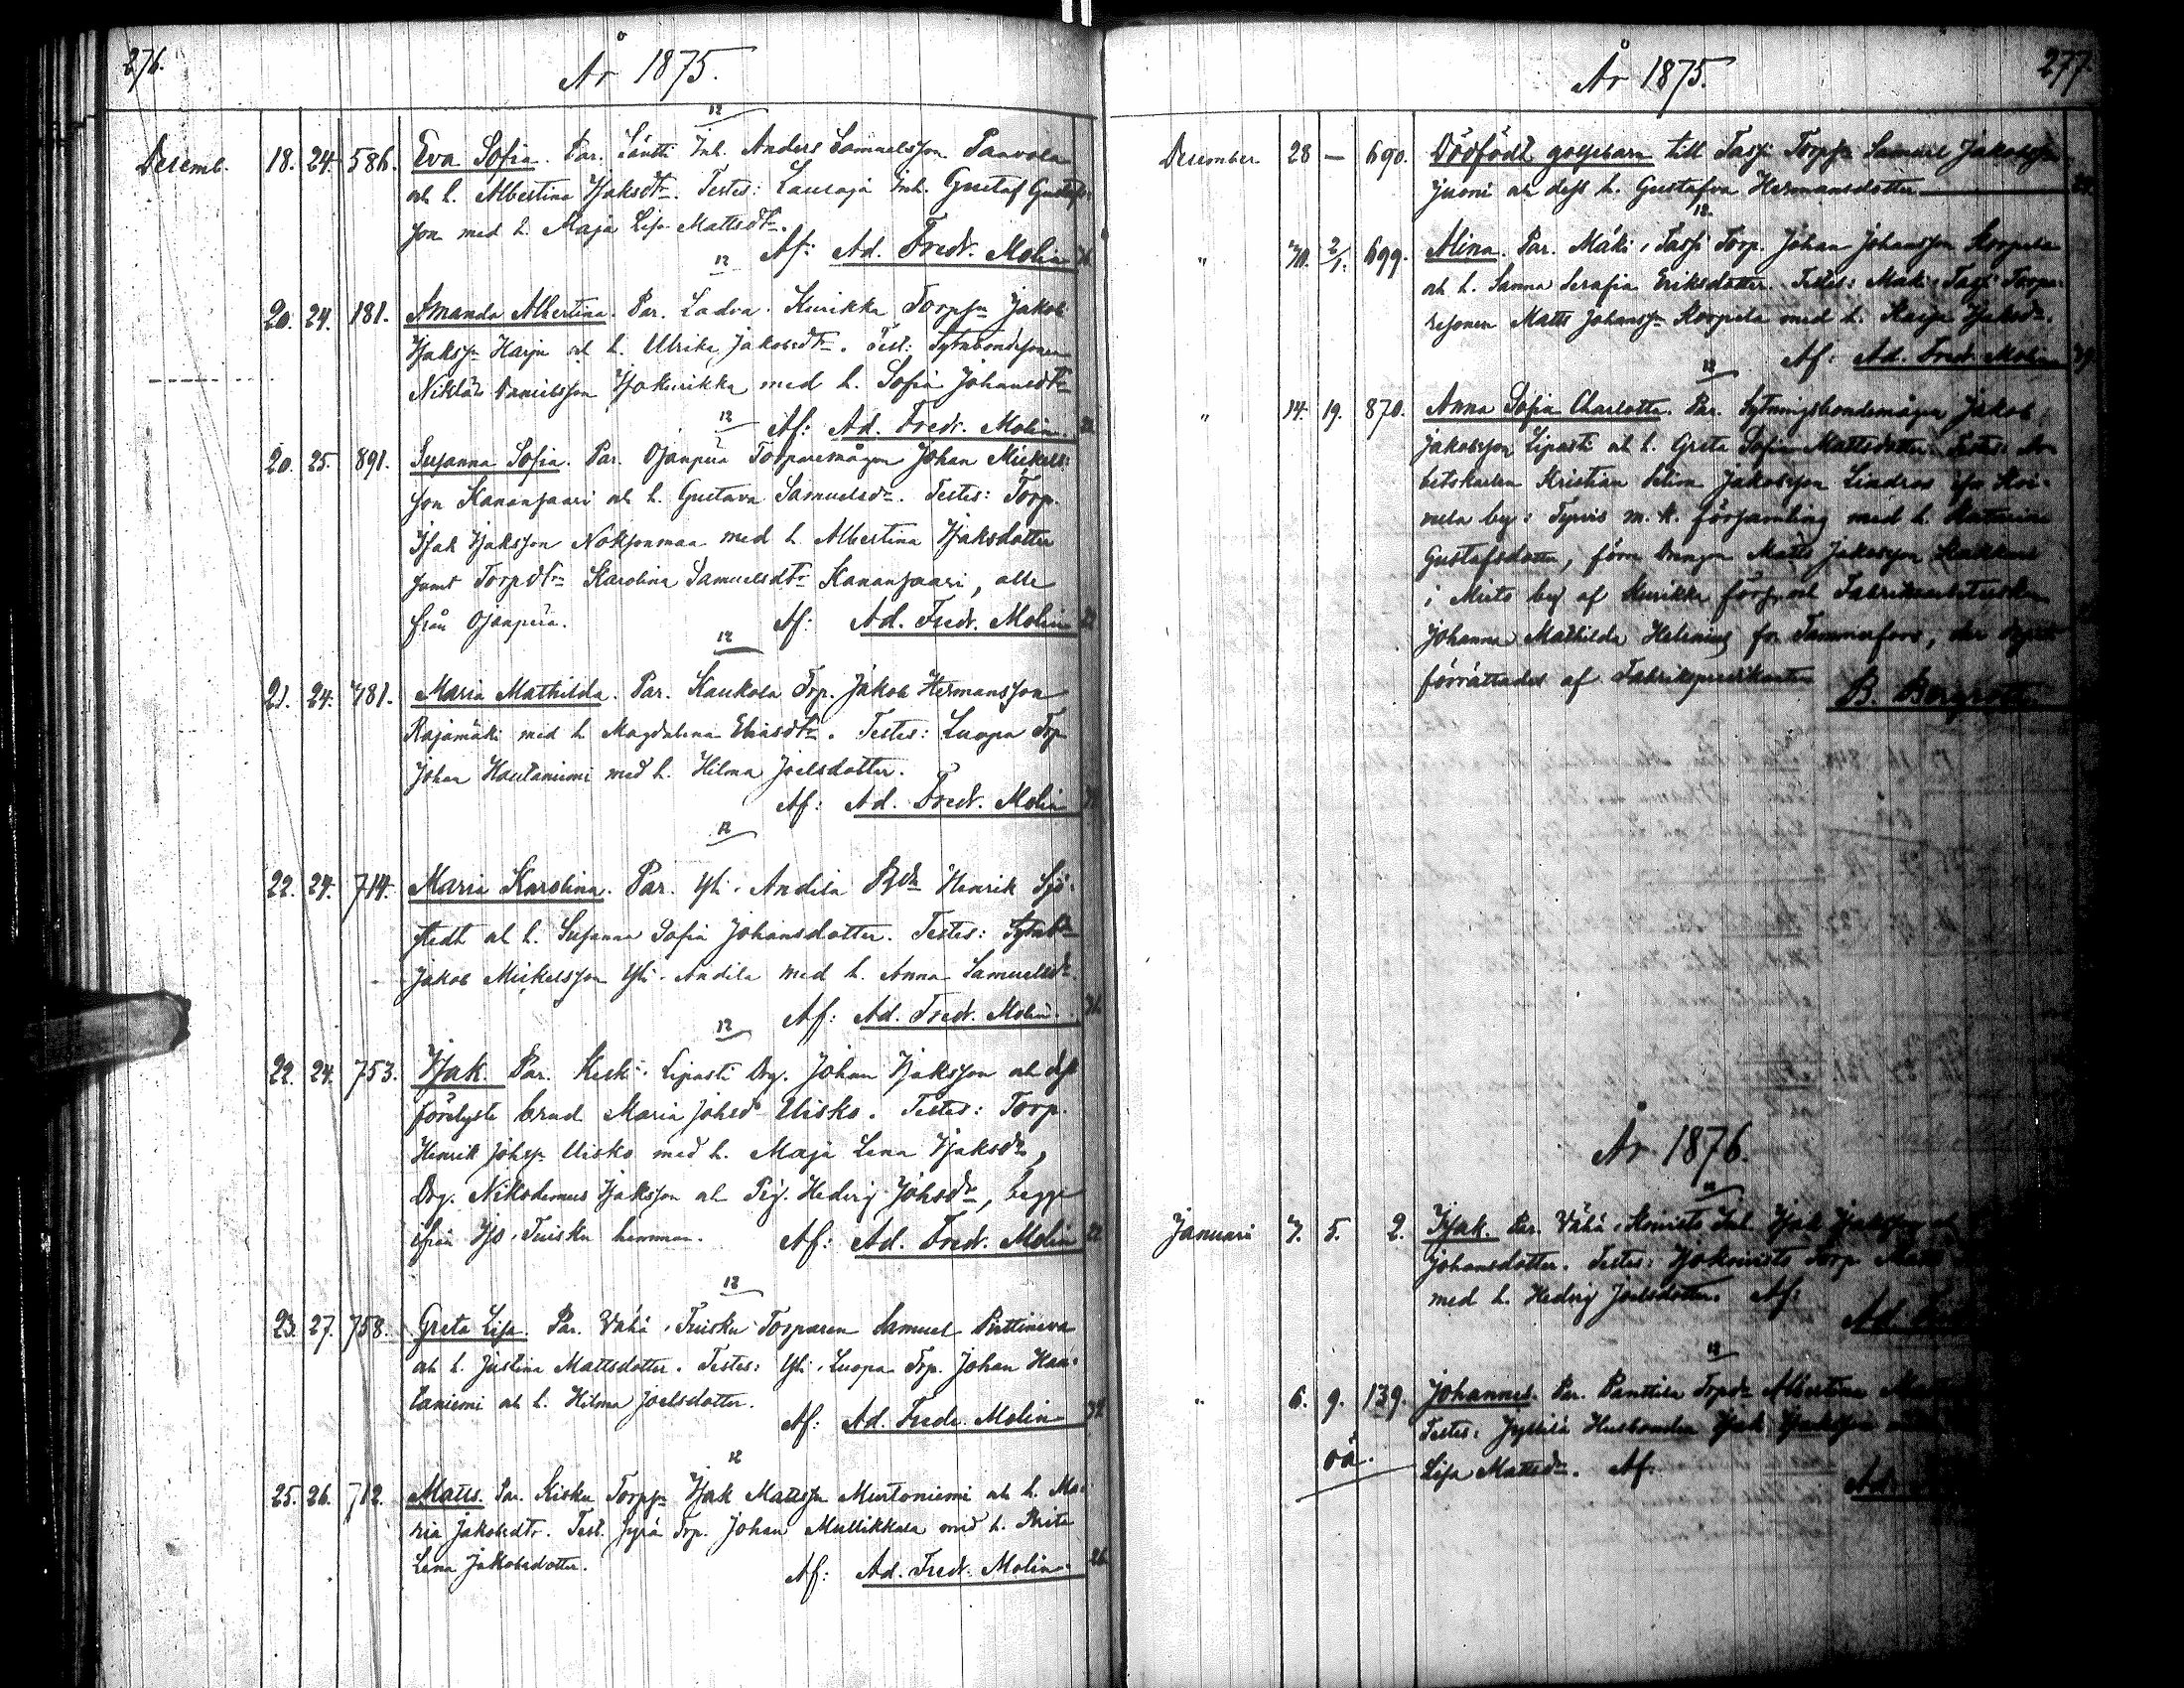 276.
År 1875.
12
Decemb. 18. 24. 586. Eva Sofia. Par. Säntti Inh. Anders Samuelsson Panvola
och h. Albertina Isaksdtr. Testes: Lauraja Inh. Gustaf Gustafs-
son med h. Maja Lisa Mattsdtr.
Af: Ad. Fredr. Molin
12
20. 24. 181. Amanda Albertina. Par. Ladva. Kurikka Torpsn Jakob
Isakssn Harju och h. Ulrika Jakobsdtr. Test: Sytnbondesonen
Niklas Danielsson Isokurikka med h. Sofia Johansdtr
12 Af: Ad. Fredr. Molin.
20. 25. 891. Susanna Sofia. Par. Ojanperä Torparemågen Johan Mickels-
son Kananpaari och h. Gustava Samuelsdr. Testes: Torp.
Isak Isaksson Noksonmaa med h. Albertina Isaksdotter
samt Torpdtr Karolina Samuelsdtr Kananpaari, alla
från Ojanperä. Af: Ad. Fredr. Molin
12
21. 24. 781. Maria Mathilda. Par. Kaukola Trp. Jakob Hermansson
Rajamäki med h. Magdalena Eliasdtr. Testes: Luopa Trp
Johan Hautaniemi med h. Hilma Joelsdotter.
Af: Ad. Fredr. Molin
12
22. 24. 714. Maria Karolina. Par. Yli-Andila Bdn Henrik Sjö-
stedt och h. Susanna Sofia Johansdotter. Testes:
Jakob Mickelsson Yli-Andila med h. Anna Samuelsdr.
12 Af: Ad. Fredr. Molin.
22. 24. 753. Isak. Par. Keski-Lipasti Drg. Johan Isaksson och dess
förelyste brud Maria Johsdr Uisko. Testes: Torp.
Henrik Johssn Uisko med h. Maja Lena Isaksdr,
Drg. Nikodemus Isaksson och Pig. Hedvig Johsdr, begge
ifrån Iso-Tuisku hemman. Af: Ad. Fredr. Molin
12
23. 27. 758. Greta Lisa. Par. Vähä-Tuisku Torparen Samuel Pirttineva
och h. Justina Mattsdotter. Testes: Yli-Luopa Trp. Johan Hau-
taniemi och h. Hilma Joelsdotter.
Af: Ad. Fredr. Molin
12
25. 26. 712. Matts. Par. Kisku Torpsn Isak Mattssn Murtoniemi och h. Ma-
ria Jakobsdtr. Test. Jyrä Trp. Johan Mullikkala med h. Brita
Lena Jakobsdotter. Af: Ad. Fredr. Molin. 26
277.
År 1875.
December 28 — 690. Dödfödt gossebarn till Tassi Torpsn Samuel Jakobsson
Juoni och dess h. Gustafva Hermansdotter
12
" 30. 2/1. 699. Alina. Par. Mäki-Tassi Torp. Johan Johansson Korpela
och h. Sanna Serafia Eriksdotter. Testes: Mäki-Tassi Torpa-
resonen Matts Johanssn Korpela med h. Kaisa Isaksdr.
12 Af: Ad. Fredr. Molin
" 14. 19. 870. Anna Sofia Charlotta. Par. Sytningsbondemågen Jakob
Jakobsson Lipasti och h. Greta Sofia Mattsdotter. Testes: Ar-
betskarlen Kristian Jakobsson Lindros ifrån
by i Tyrvis m. k. församling med h.
Gustafsdotter, förra Drengen Matts Jakobsson
i Mieto by af Kurikka förs. och Fabriksarbeterskan
Johanna Mathilda Helenius från Tammerfors, der dopet
förrättades af Fabrikspredikanten
B. Bergroth
År 1876.
12
Januari 3. 5. 2. Isak. Par. Vähä-Koivisto Inh. Isak Isaksson och
Johansdotter. Testes: Isokoivisto Torp. Matts
med h. Hedvig Joelsdotter. Af:
Ad.
12
" 6. 9. 139. Johannes. Par. Panttila Torpdr Albertina
oä. Testes: Jyllilä Husbonden Isak Isaksson
Lisa Mattsdr. Af.
Ad.